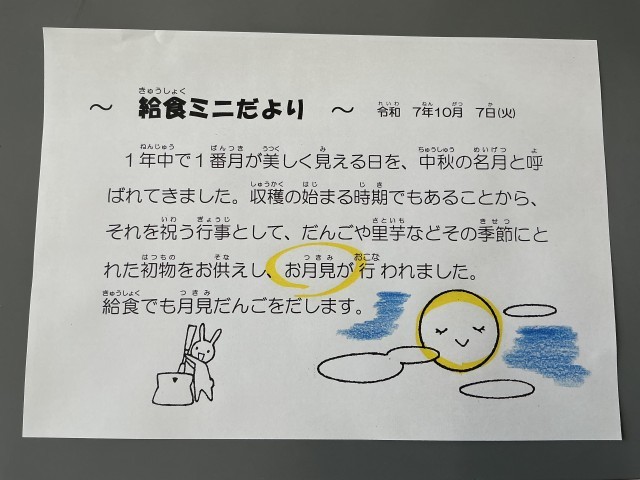 ～ 給食ミニだより ～ 令和 7年10月 7日(火)
1年中で1番月が美しく見える日を、中秋の名月と呼
ばれてきました。収穫の始まる時期でもあることから、
それを祝う行事として、だんごや里芋などその季節にと
れた初物をお供えし、お月見が行われました。
給食でも月見だんごをだします。